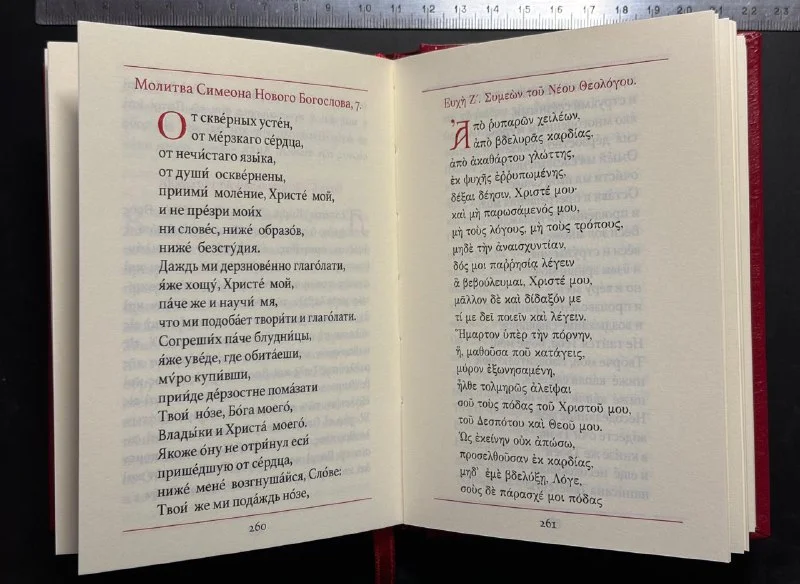 Молитва Симеона Нового Богослова, 7.
От сквéрных устéн,
от мéрзкаго сéрдца,
от нечи́стаго язы́ка,
от души́ осквéрнены,
приими́ молéние, Христé мой,
и не прéзри мои́х
ни словéс, нижé образóв,
нижé безстýдия.
Даждь ми дерзновéнно глагóлати,
я́же хощý, Христé мой,
пáче же и научи́ мя,
что ми подобáет твори́ти и глагóлати.
Согреши́х пáче блудни́цы,
я́же увéде, где обитáеши,
мýро купи́вши,
прии́де дéрзостне помáзати
Твои́ нóзе, Бóга моегó,
Влады́ки и Христá моегó.
Я́коже óну не отри́нул еси́
пришéдшую от сéрдца,
нижé менé возгнушáйся, Слóве:
Твои́ же ми подáждь нóзе,
260
Εὐχὴ Ζ΄. Συμεὼν τοῦ Νέου Θεολόγου.
Ἀπὸ ῥυπαρῶν χειλέων,
ἀπὸ βδελυρᾶς καρδίας,
ἀπὸ ἀκαθάρτου γλώττης,
ἐκ ψυχῆς ἐῤῥυπωμένης,
δέξαι δέησιν, Χριστέ μου·
καὶ μὴ παρωσάμενός μου,
μὴ τοὺς λόγους, μὴ τοὺς τρόπους,
μηδὲ τὴν ἀναισχυντίαν,
δός μοι παῤῥησίᾳ λέγειν
ἃ βεβούλευμαι, Χριστέ μου,
μᾶλλον δὲ καὶ δίδαξόν με
τί με δεῖ ποιεῖν καὶ λέγειν.
Ἥμαρτον ὑπὲρ τὴν πόρνην,
ἥ, μαθοῦσα ποῦ κατάγεις,
μύρον ἐξωνησαμένη,
ἦλθε τολμηρῶς ἀλεῖψαι
σοῦ τοὺς πόδας τοῦ Χριστοῦ μου,
τοῦ Δεσπότου καὶ Θεοῦ μου.
Ὡς ἐκείνην οὐκ ἀπώσω,
προσελθοῦσαν ἐκ καρδίας,
μηδ᾽ ἐμὲ βδελύξῃ, Λόγε,
σοὺς δὲ παράσχέ μοι πόδας
261